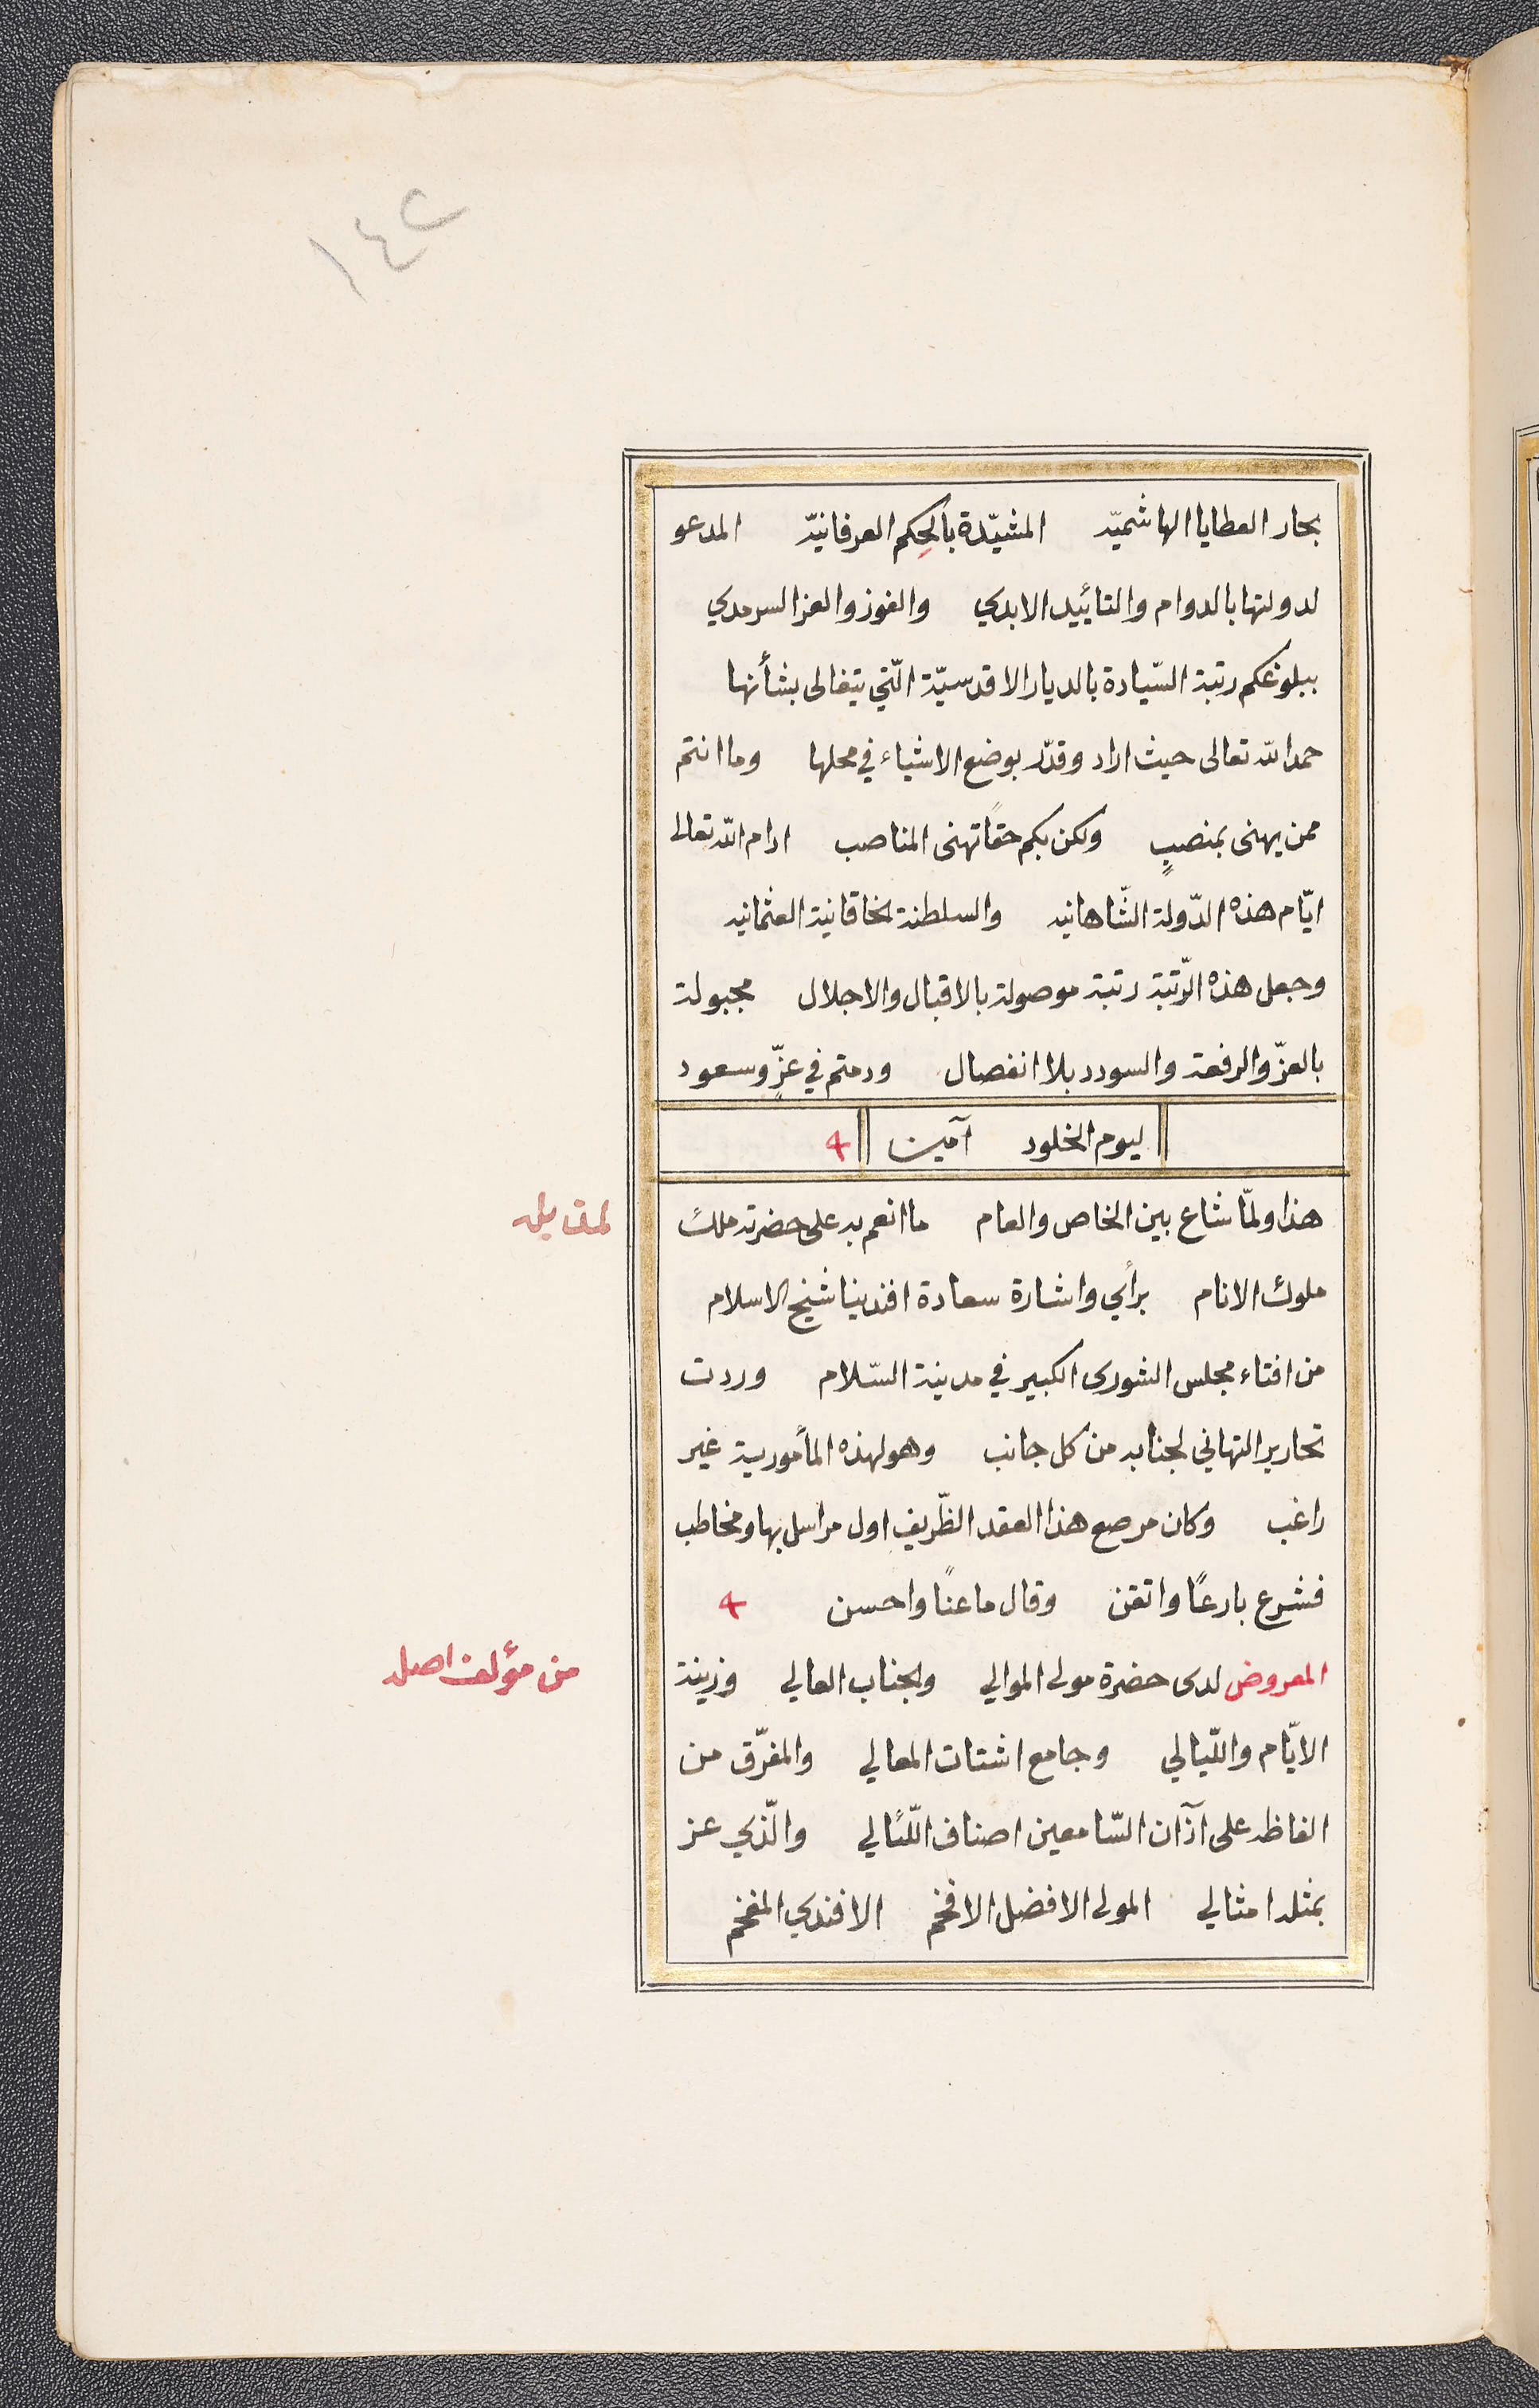 ١٤٢
بحار العطايا الهاشميّه المشيّدة بالحِكم العرفانيّه المدعو
لدولتها بالدوام والتائييد الابدي والفوز والعز السرمدي
ببلوغكم رتبة السّيادة بالديار الاقدسيّة الّتي يتغالى بشأنها
حمدا لله تعالى حيث اراد وقدّر بوضع الاشياء في محلها وما انتم
ممن يهنى بمنصبٍ ولكن بكم حقًا تهنى المناصب ادام الله تعالى
ايّام هذه الدّولة الشّاهانيه والسلطنة لخاقانية العثمانيه
وجعل هذه الرّتبة رتبة موصولة بالاقبال والاجلال مجبولة
بالعزّ والرفعة والسودد بلا انفصال ودمتم في عزٍّ وسعود
ليوم الخلود آمين
هذا ولمّا شاع بين الخاص والعام ما انعم به على حضرته ملك
ملوك الانام برأي واشارة سعادة افندينا شيخ الاسلام
من افتاء مجلس الشورى الكبير في مدينة السّلام وردت
تحارير التهاني لجنابه من كل جانب وهو لهذه المأمورية غير
راغب وكان مرصع هذا العقد الظّريف اول مراسل بها ومخاطب
فشرع بارعًا واتقن وقال ماعنًا واحسن
المعروض لدى حضرة مولى الموالي ولجناب العالي وزينة
من مؤلف اصله
الايّام واللّيالي وجامع اشتات المعالي والمفرّق من
الفاظه على آذان السّامعين اصناف اللّئالي والّذي عز
بمثله امثالي المولى الافضل الافخم الافندي المفخم